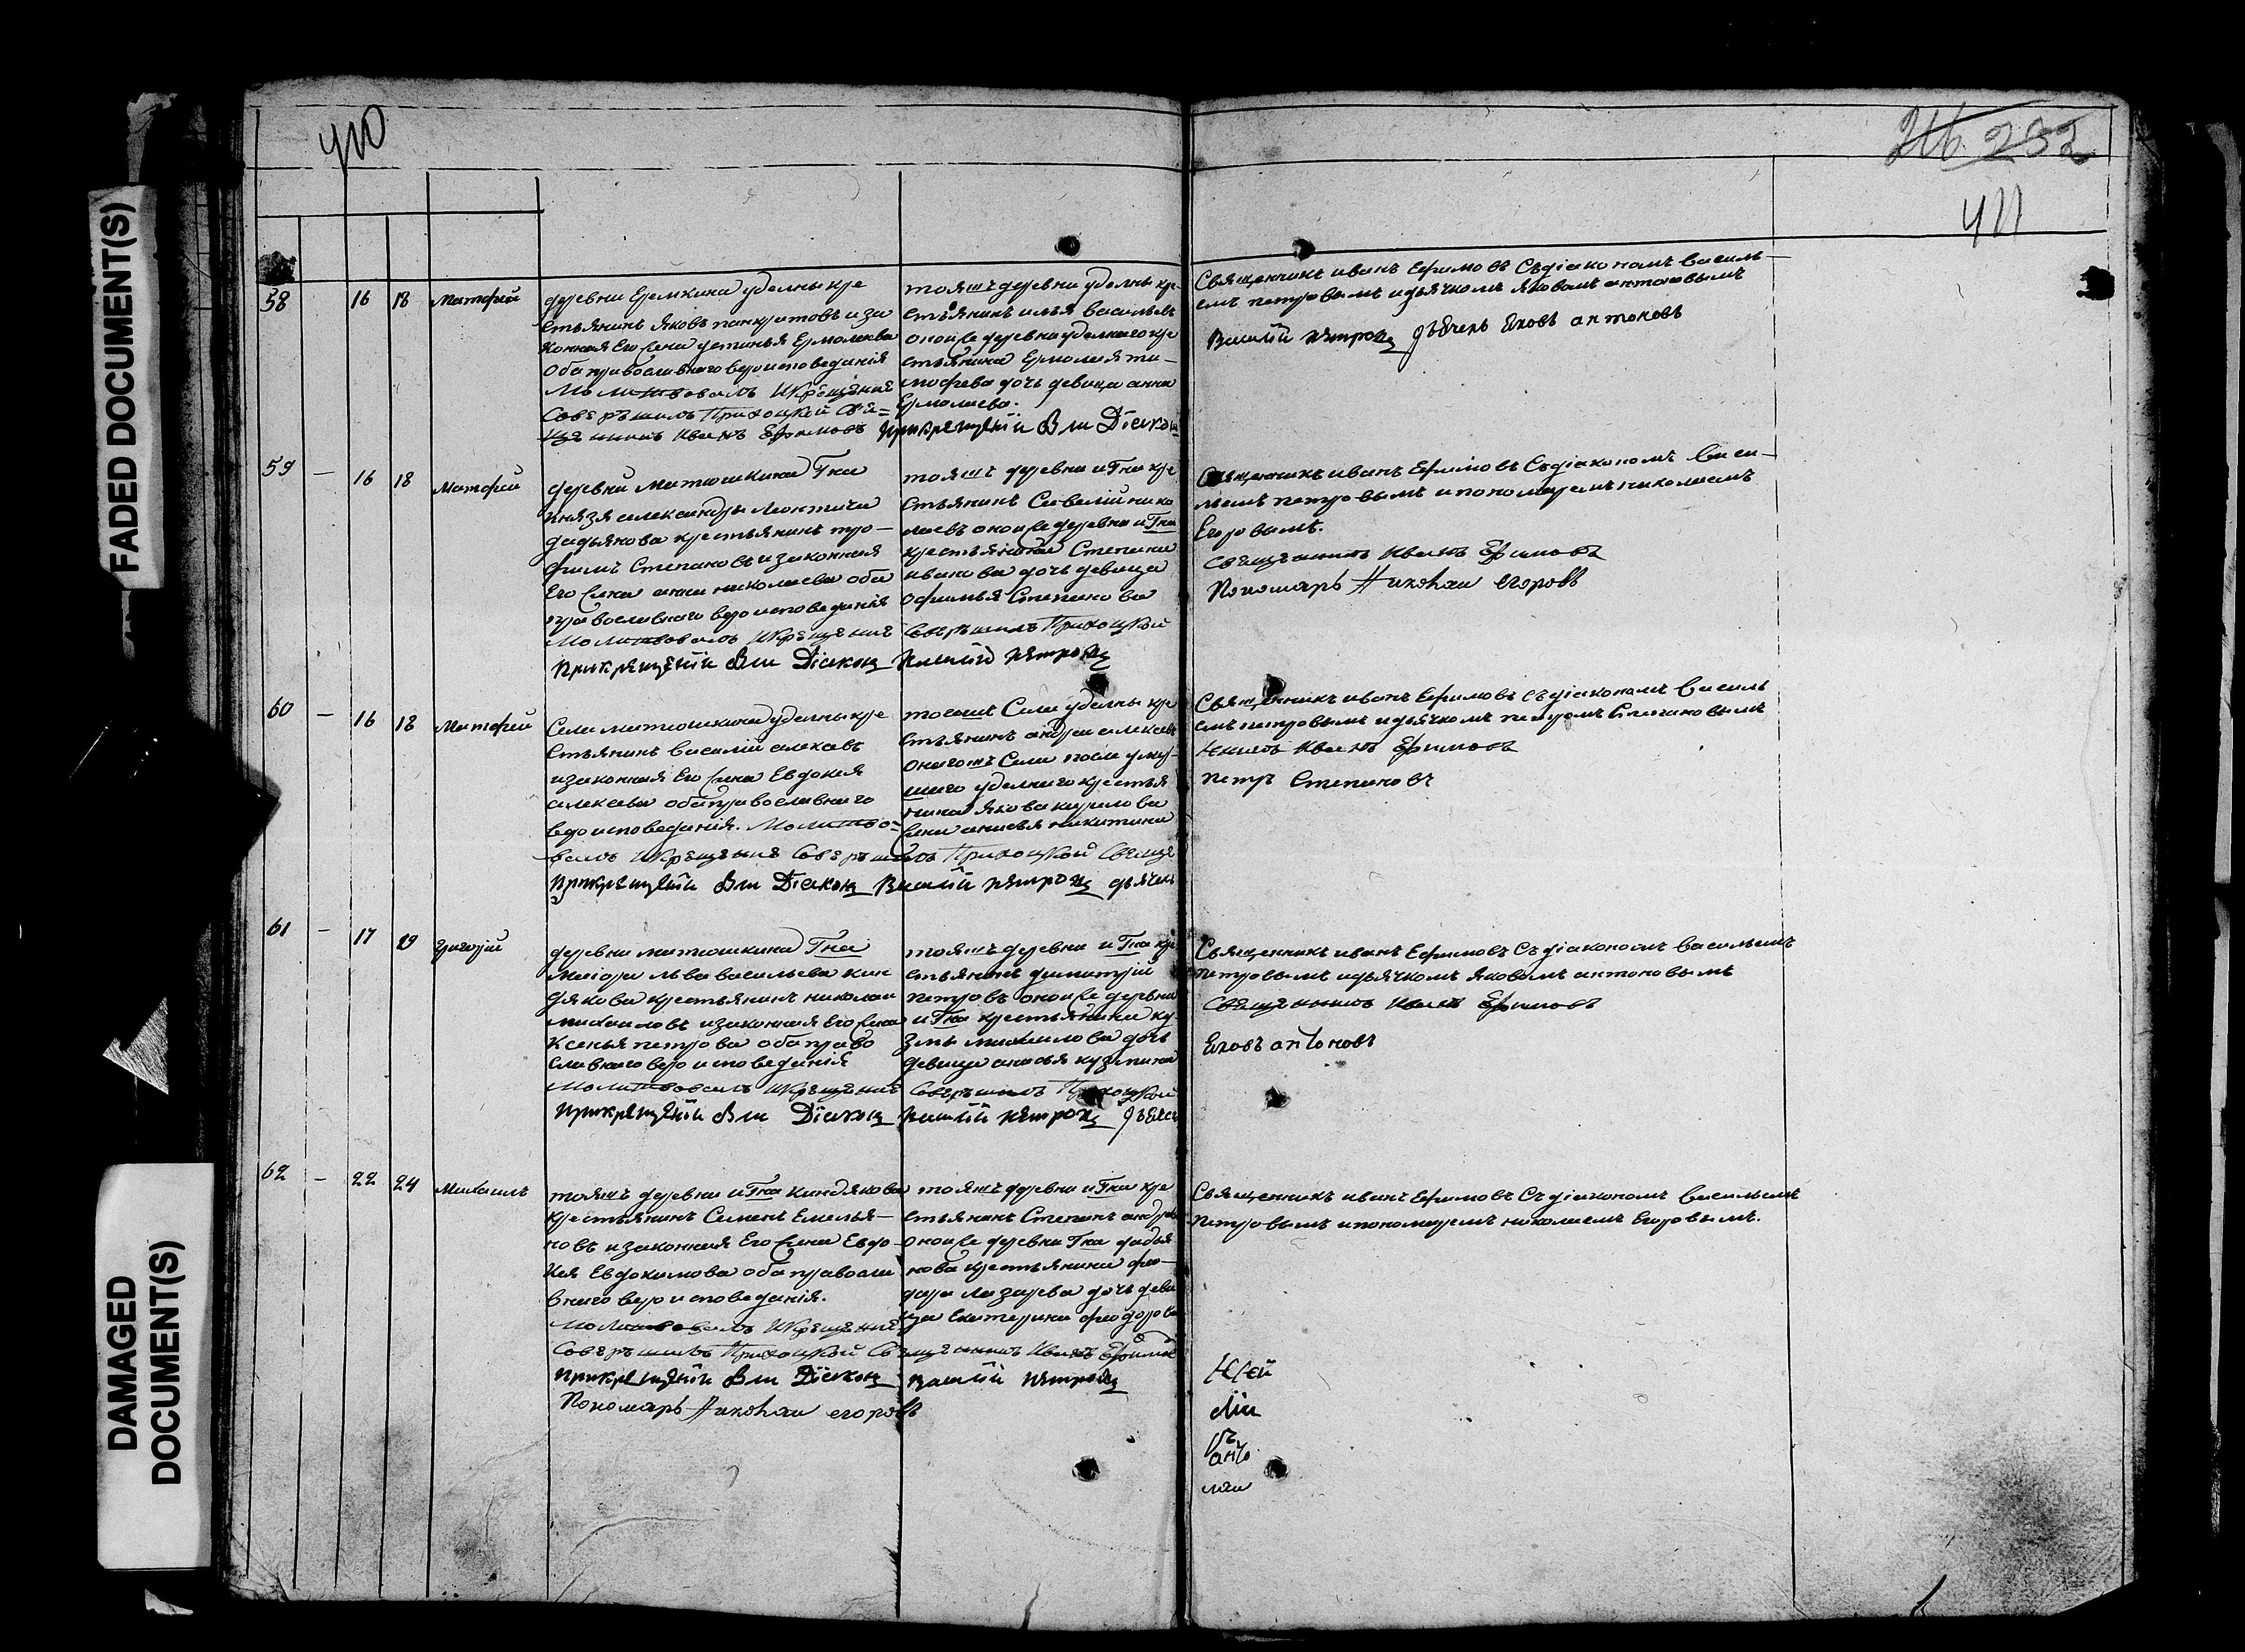 FADED DOCUMENT(S)
DAMAGED
DOCUMENT(S)
410
232
411
58
16 18 Матфей
деревни Еремкина уделны кре
стьянинъ яковъ панкратовъ и за
конная Его жена устинья Ермолаева
оба православнаго вероисповедания
Молитвовалъ И Крещение
Совершилъ Приходцкой Свя=
щенникъ Иванъ Ефимовъ
тояжъ деревни уделны кре
стьянинъ илья васильевъ
оной же деревни уделнаго кре
стьянина Ермолая ти-
мофеева дочь девица анна
Ермолаева.
При крещении был Дiакон
Священникъ иванъ Ефимовъ Съ дiакономъ василь-
емъ петровымъ и дьячкомъ яковомъ антоновымъ
Василий петров дьячекъ яковъ антоновъ
59 - 16 18 Матфей
деревни Матюшкина Гна
Князя александра Леонтича
дадьянова крестьянинъ тро-
фимъ Степановъ и законная
Его жена анна николаева оба
православнаго вероисповедания
Молитвовалъ И Крещение
При крещении был Дiакон
тояжъ деревни и Гна кре
стьянинъ Савелий нико
лаевъ оной же деревни и Гна
крестьянина Степана
иванова дочь девица
офимья Степанова
Совершилъ Приходцкой
Василий петров
Священникъ иванъ Ефимовъ Съ дiакономъ Васи-
льемъ петровымъ и пономаремъ николаемъ
Егоровымъ.
Священникъ Иванъ Ефимовъ
Пономарь Николаи егоровъ
60 - 16 18 Матфей
Села матюшкина уделны кре
стьянинъ василий алексевъ
и законная Его жена Евдокея
алексева оба православнаго
вероисповедания. Молитво=
валъ И Крещение Совершилъ Приходцкой Свяще
При крещении был Дiакон Василий петров дьячекъ
тогожъ Села уделны кре
стьянинъ андрей алексевъ
оногожъ Села после умер
шаго уделнаго крестья
нина якова кирилова
жена анисья никитина
Священникъ иванъ Ефимовъ съ дiакономъ василь
емъ петровымъ и дьячкомъ петромъ Степановымъ
нникъ Иванъ Ефимовъ
петръ Степановъ
61 - 17 29 григорий
деревни матюшкина Гна
Маiора льва васильева кин
дякова крестьянинъ николай
михаиловъ и законная Его жена
Ксенья петрова оба право
славнаго вероисповедания
Молитвовалъ И Крещение
При крещении был Дiакон
тояжъ деревни и Гна кре
стьянинъ димитрий
петровъ оной же деревни
и Гна крестьянина ку
змы михаилова дочь
девица анисья кузмина
Совершилъ Приходцкой
Василий петров дьячек
Священникъ иванъ Ефимовъ Съ дiакономъ васильемъ
петровымъ и дьячкомъ яковомъ антоновымъ
Священникъ Иванъ Ефимовъ
яковъ антоновъ
62 - 22 24 Михаилъ
тояжъ деревни и Гна киндякова
крестьянинъ Сименъ Емелья-
новъ и законная Его жена Евдо-
кея Евдокимова оба правосла
внаго вероисповедания.
Молитвовалъ И Крещение
Совершилъ Приходцкой Священникъ Иванъ Ефимовъ
При крещении был Дiакон Василий петров
Пономарь Николаи егоровъ
тояжъ деревни и Гна кре
стьянинъ Степанъ андреевъ
оной же деревни Гна дадья
нова крестьянина фео-
дора лазарева дочь деви
ца Екатерина феодорова
Священникъ иванъ Ефимовъ Съ дiакономъ васильемъ
петровымъ и пономаремъ николаемъ Егоровымъ.